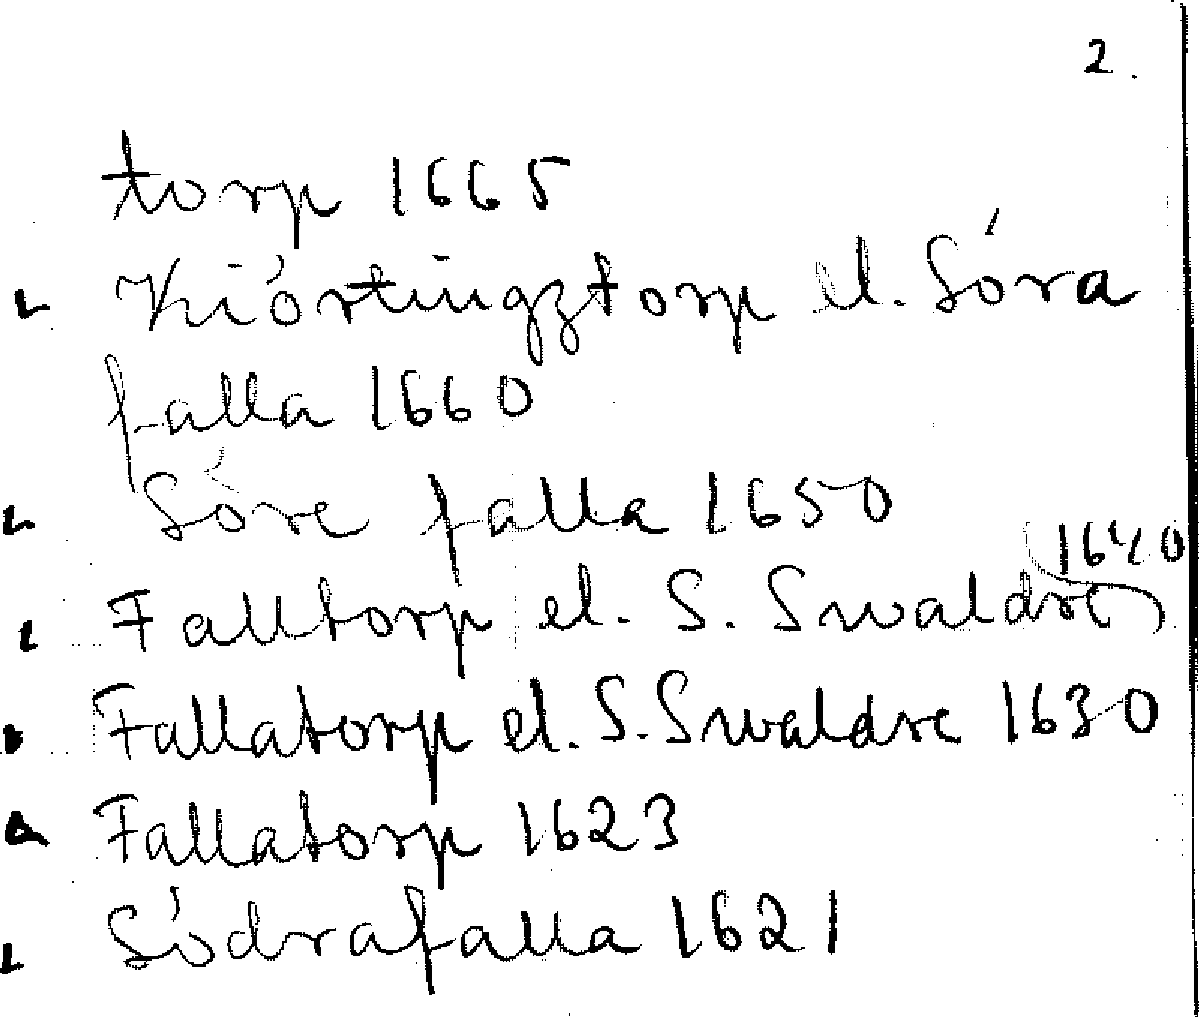 2.
torp 1665
Kiörtingztorp el. Söra
falla 1660
Söre falla 1650
1640
Falltorp el. S. Swaldre
Fallatorp el. S. Swaldre 1630
Fallatorp 1623
Södrafalla 1621